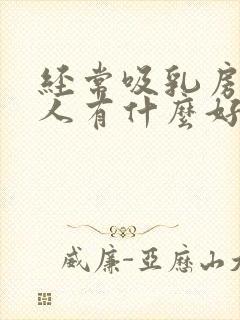 经常吸乳房
人有什麼好
威廉-亞歷山大